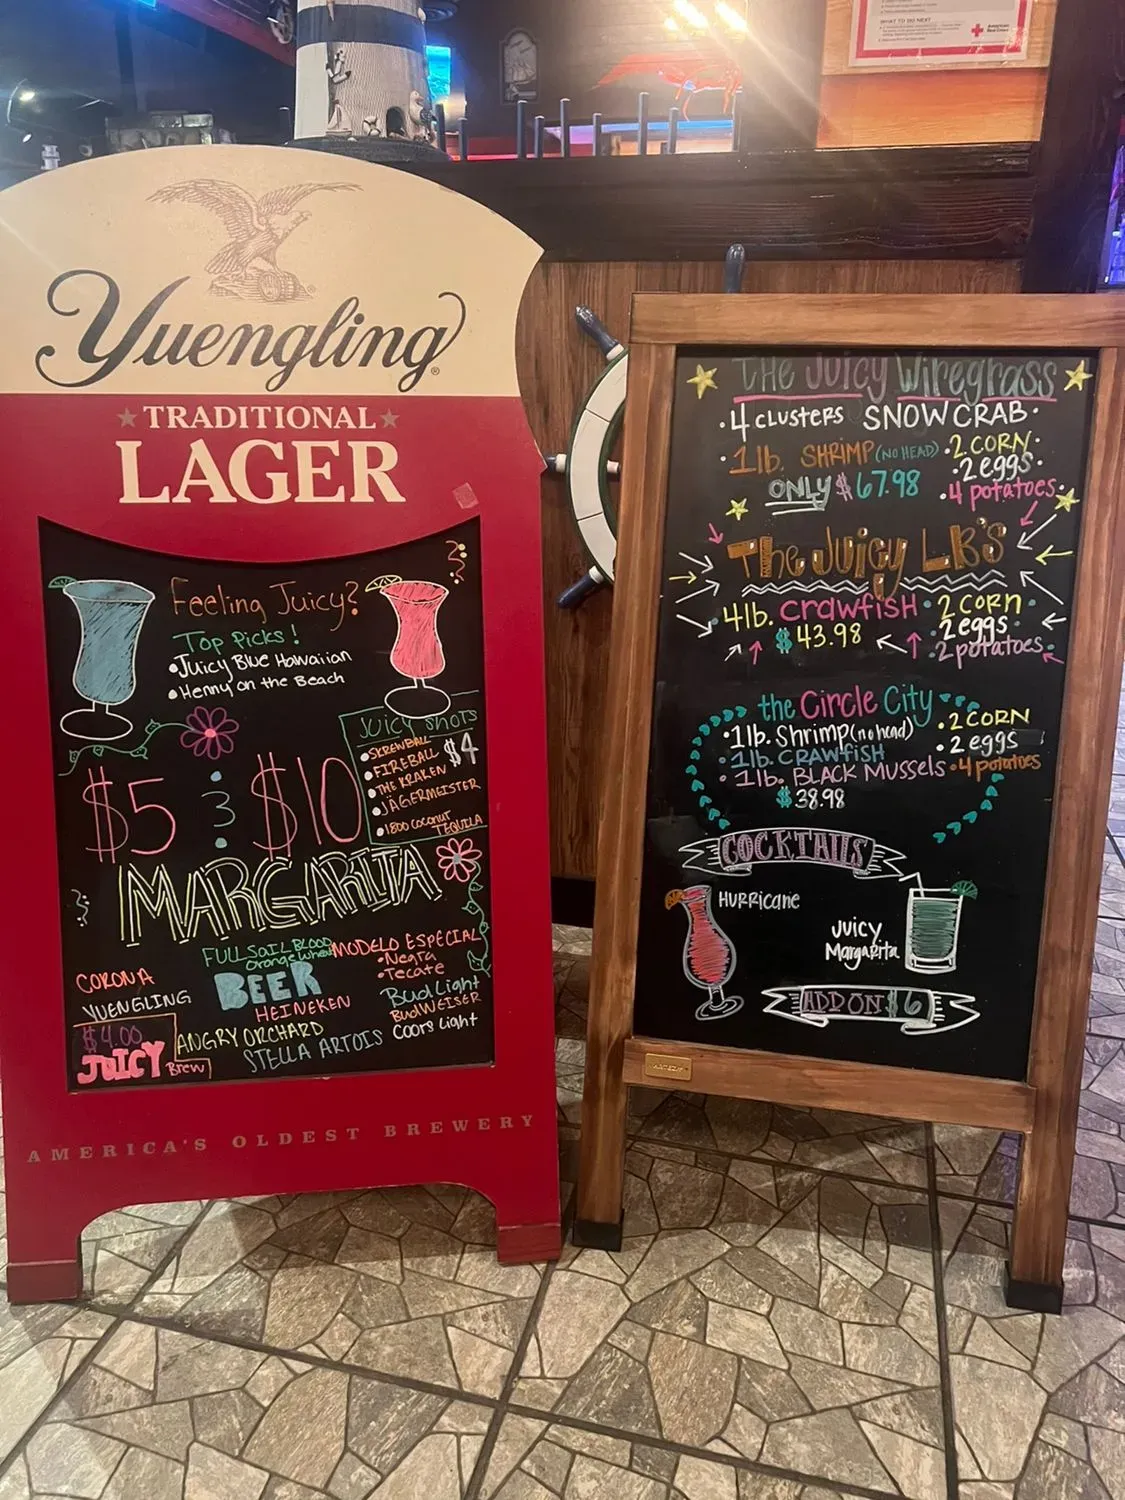 WHAT TO DO NEXT
American
Red Cross
Yuengling
®
TRADITIONAL
LAGER
Feeling Juicy?
Top Picks!
• Juicy Blue Hawaiian
• Henny on the Beach
JUICY SHOTS
• SKREWBALL $4
• FIREBALL
• THE KRAKEN
• JÄGERMEISTER
• 1800 Coconut
TEQUILA
$5 & $10
MARGARITA
FULL SAIL BLOOD
orange wheat
BEER
MODELO ESPECIAL
• Negra
• Tecate
CORONA
YUENGLING
HEINEKEN
Bud Light
BUDWEISER
Coors Light
ANGRY ORCHARD
STELLA ARTOIS
$4.00
JUICY Brew
AMERICA'S OLDEST BREWERY
THE JUICY Wiregrass
• 4 clusters SNOW CRAB •
• 1lb. SHRIMP (NO HEAD) • 2 CORN •
• 2 eggs •
ONLY $67.98 • 4 potatoes •
The Juicy LB'S
• 4lb. crawfish • 2 CORN •
$43.98 • 2 eggs •
• 2 potatoes •
the Circle City
• 1lb. Shrimp (no head) • 2 CORN
• 1lb. CRAWFISH • 2 eggs
• 1lb. BLACK Mussels • 4 potatoes
$38.98
COCKTAILS
HURRICANE
JUICY
Margarita
ADD ON $6